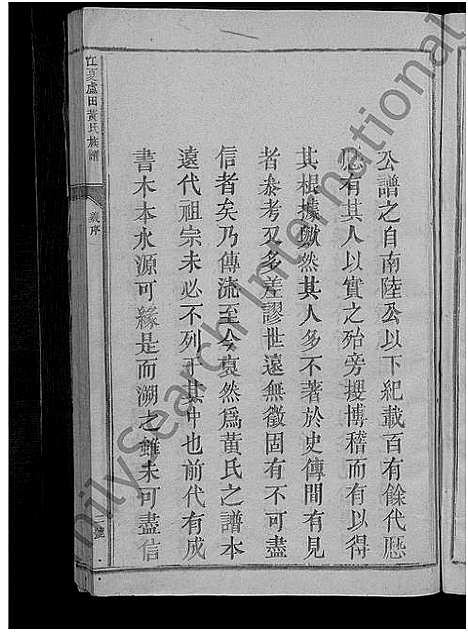 公譜之自南陸公以下紀載百有餘代歷
必有其人以實之殆旁搜博稽而有以得
其根據歟然其人多不著於史傳間有見
者叅考又多差謬世遠無徵固有不可盡
信者矣乃傳流至今裒然爲黃氏之譜本
遠代祖宗未必不列于其中也前代有成
書木本水源可緣是而溯之雖未可盡信
江夏盧田黃氏族譜
義序
號
FamilySearch International